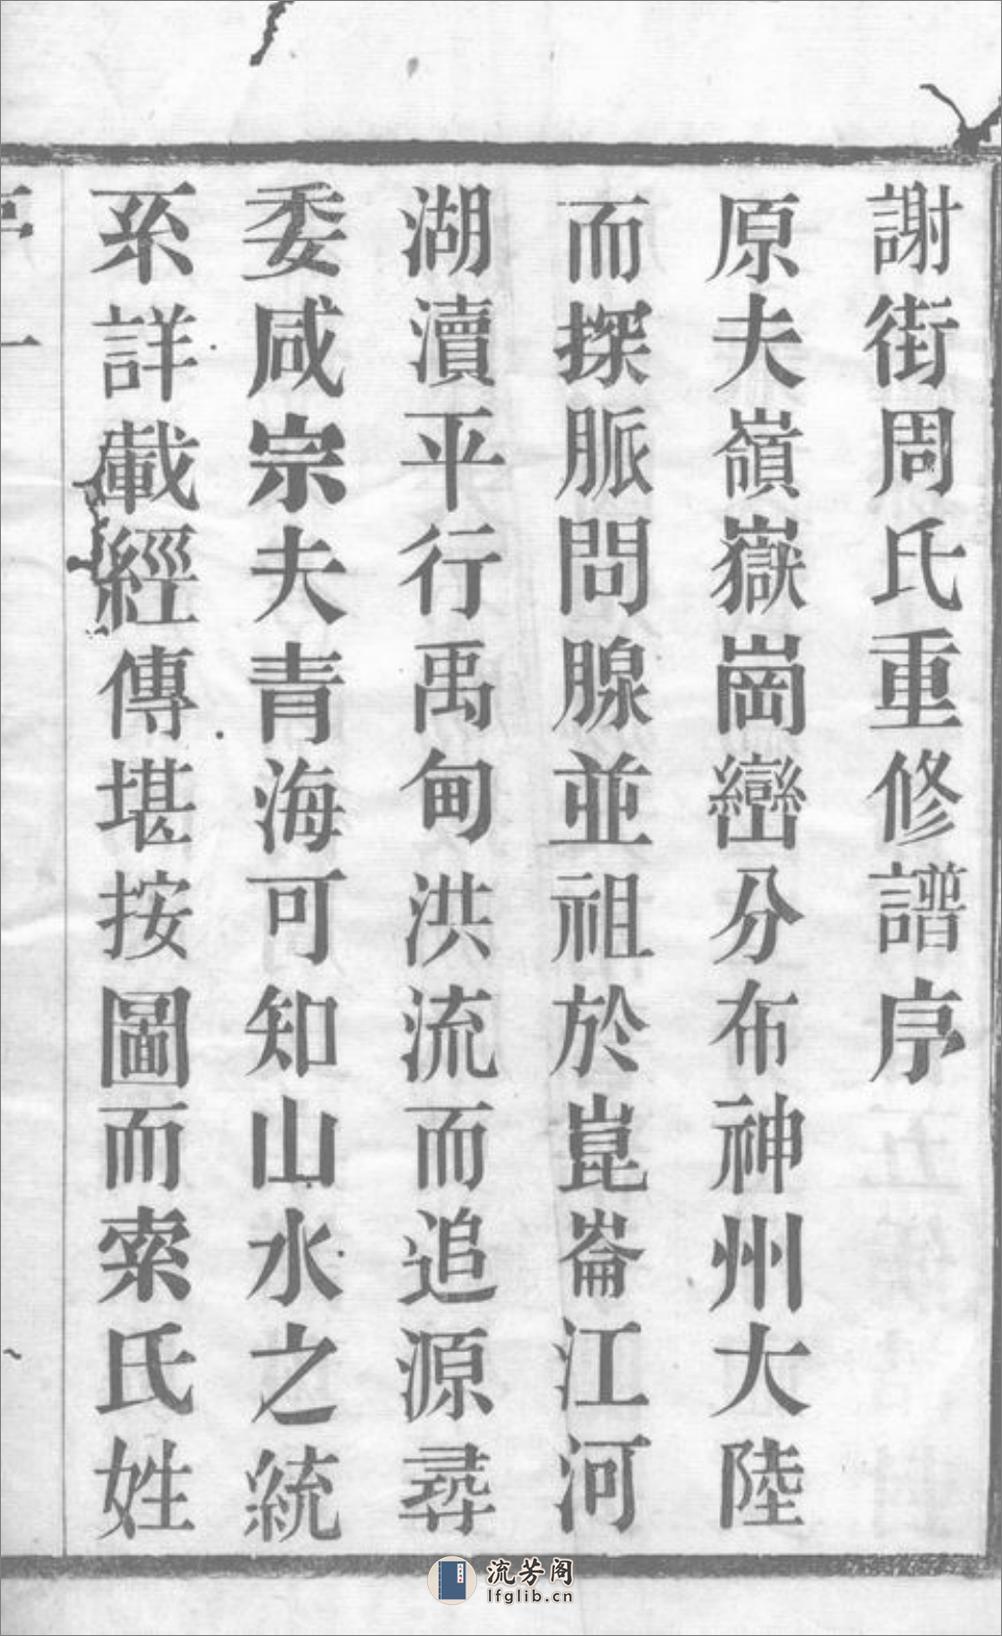 謝街周氏重修譜序
原夫嶺嶽崗巒分布神州大陸
而探脈問腺並祖於崑崙江河
湖瀆平行禹甸洪流而追源尋
委咸宗夫青海可知山水之統
系詳載經傳堪按圖而索氏姓
序一
流芳阁
lfglib.cn